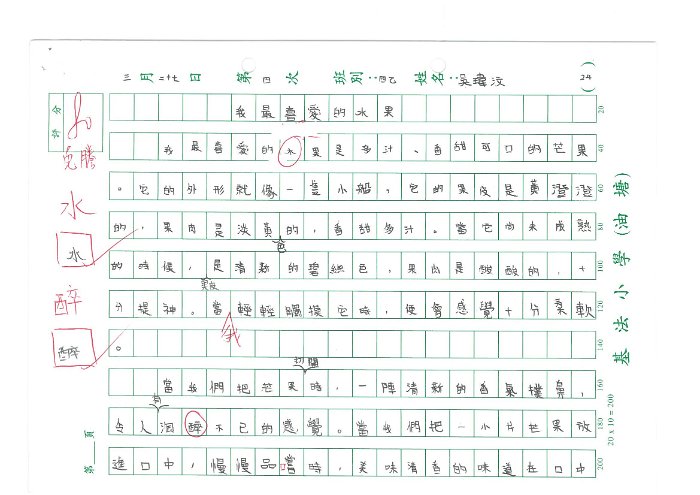 三月二十七日 第四次 班別：四乙 姓名：吳瑋汶 (24)
評分
我最喜愛的水果
我最喜愛的水果是多汁、香甜可口的芒果
。它的外形就像一隻小船，它的果皮是黃澄澄
的，果肉是淡黃色的，香甜多汁。當它尚未成熟
的時候，果皮是清新的碧綠色，果肉是酸酸的，十
分提神。當我輕輕觸摸它時，便會感覺十分柔軟
。
當我們把芒果切開時，一陣清新的香氣撲鼻，
令人有陶醉不已的感覺。當我們把一小片芒果放
進口中，慢慢品嚐時，美味清香的味道在口中
免騰
水
水
醉
醉
20
40
60
80
100
120
140
160
180
200
基法小學(油塘)
20 x 10 = 200
第__頁